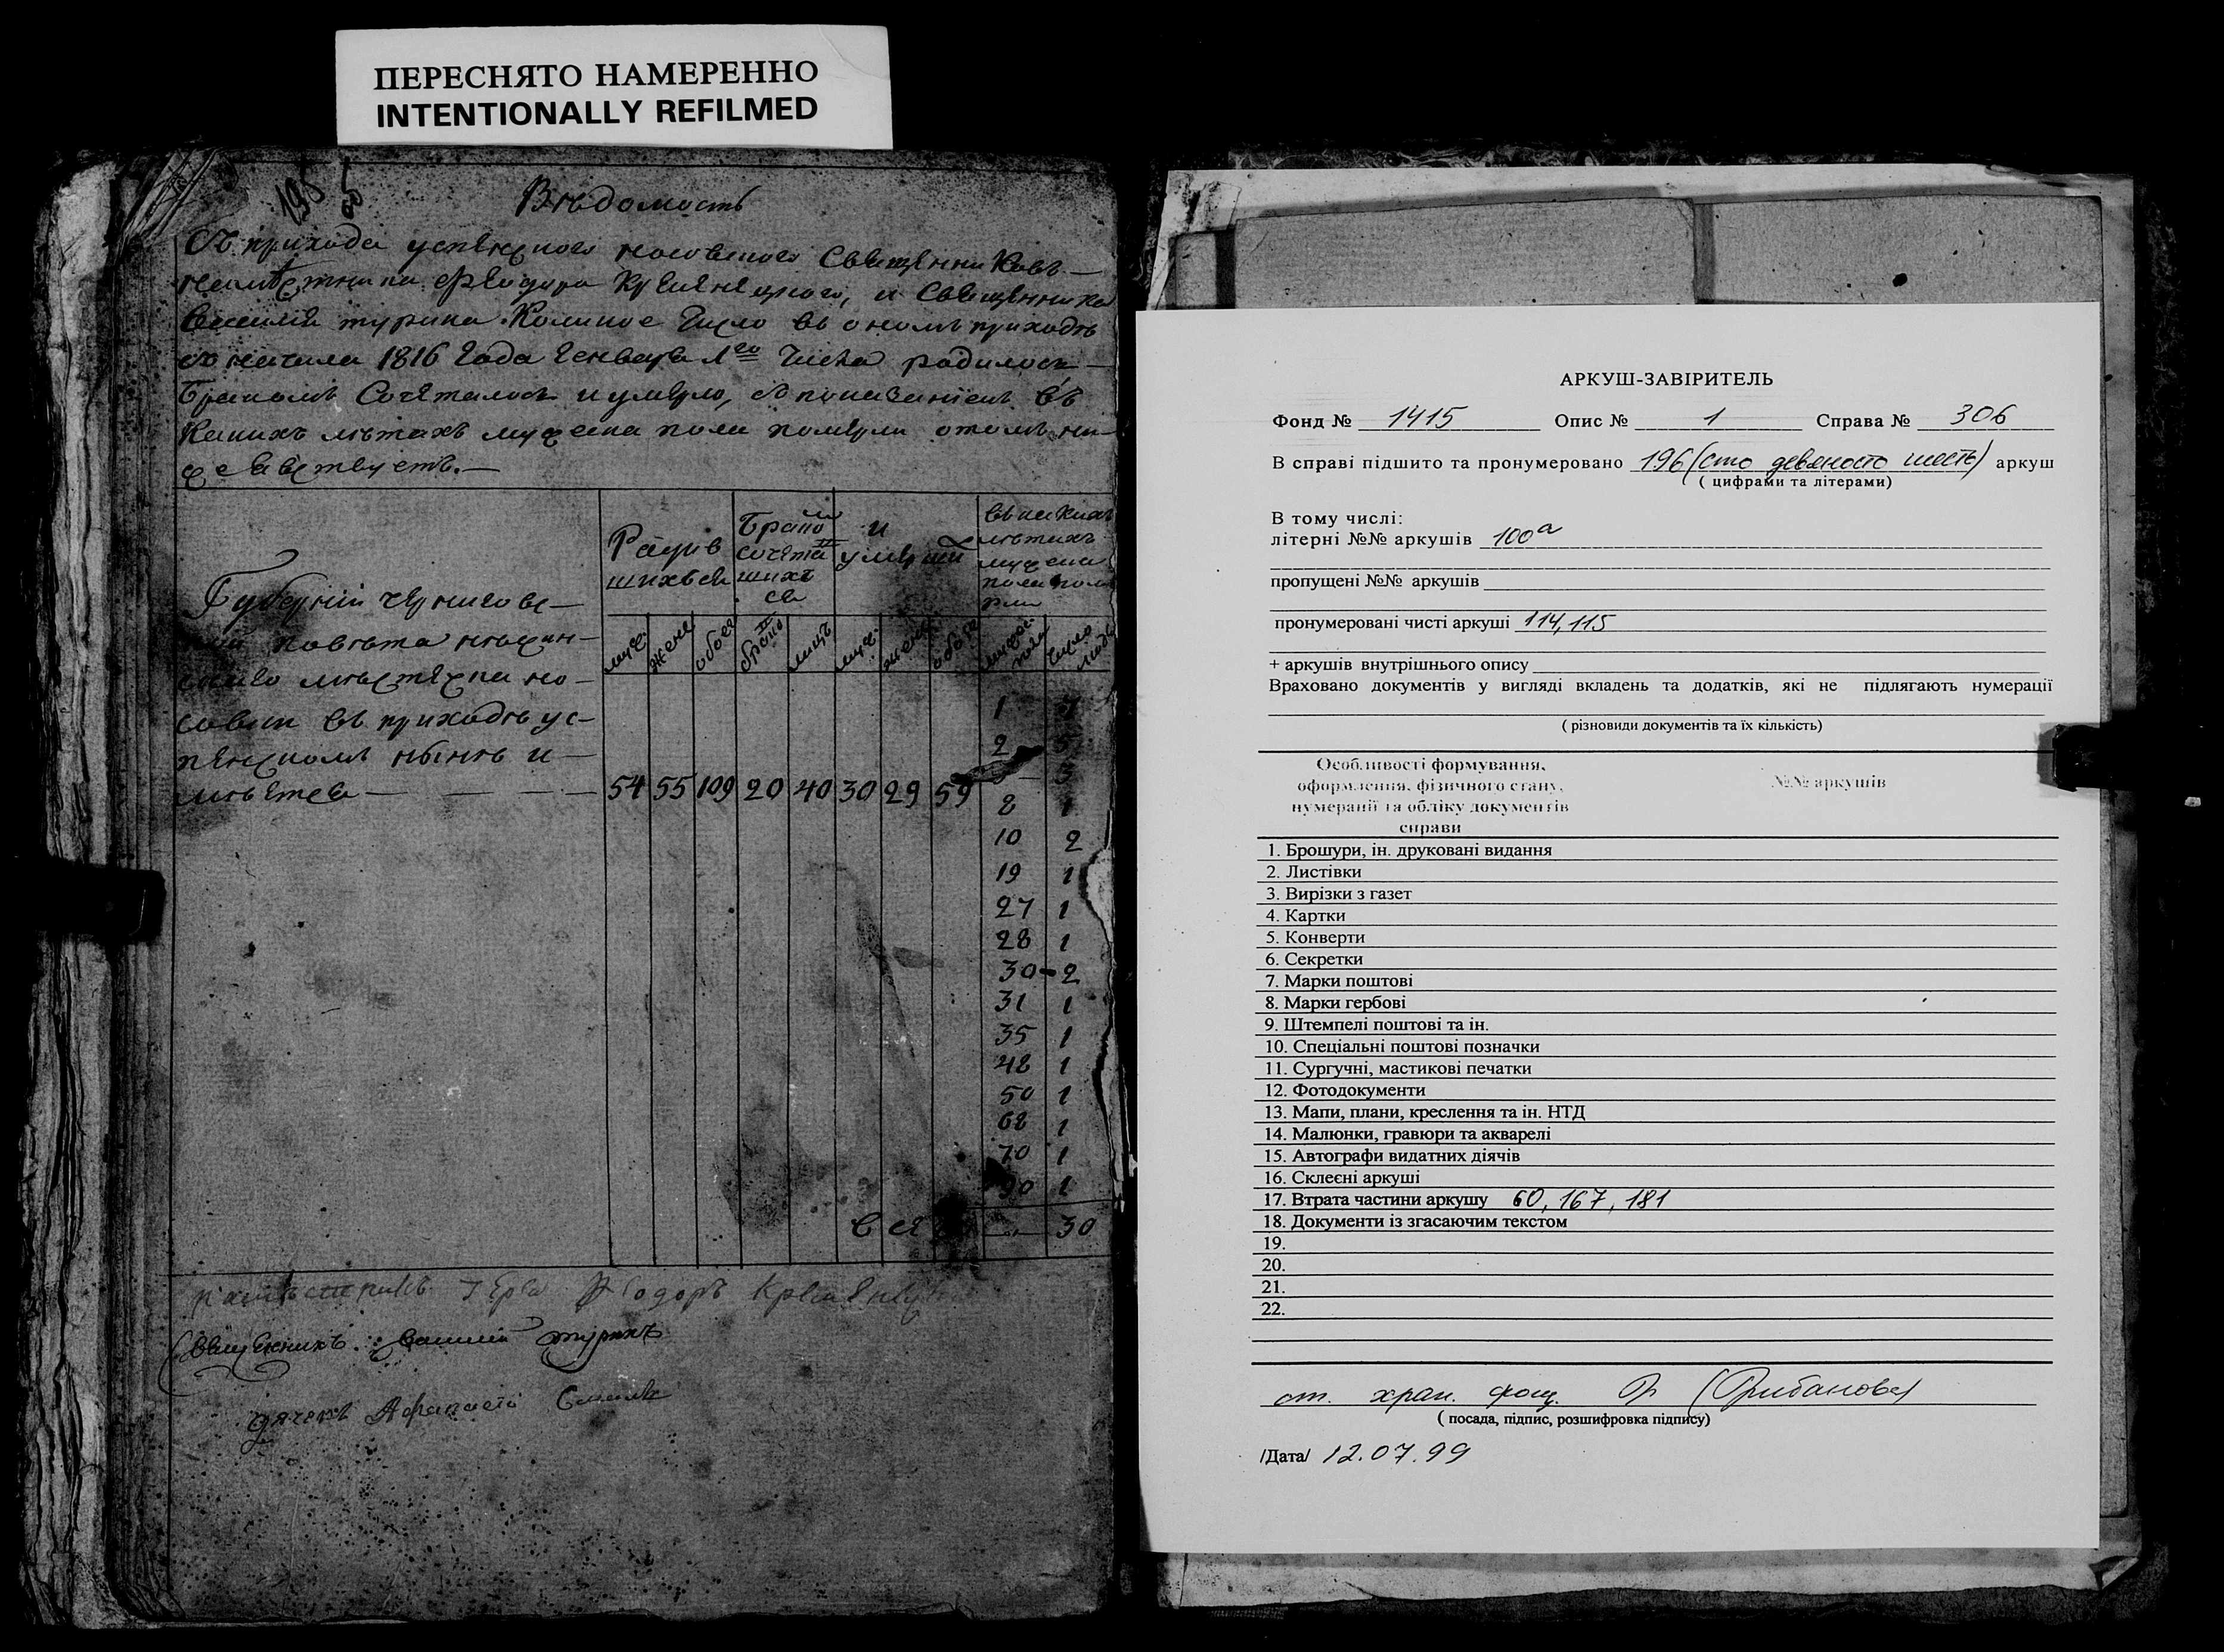 ПЕРЕСНЯТО НАМЕРЕННО
INTENTIONALLY REFILMED
195
Вѣдомость
Съ прихода успенского носовского Священниковъ —
намѣстника Феодора, и Священника
Василия турика. Коликое число въ ономъ приходѣ
съ начала 1816 года Генваря 1го числа родилось —
бракомъ сочеталось и умерло, съ показаніемъ въ
какихъ лѣтахъ мужеска пола померли о томъ ни-
же явствуетъ. —
Губерніи чернигов
повѣта нѣжин-
ского мѣстечка но-
совки въ приходѣ ус-
пенскомъ нынѣ и —
мѣется — — — —
Родив
шихся
Брако
сочета
вшихъ
ся
и
умерши
въ какихъ
лѣтахъ
мужеска
пола поме
рли
муж. жен. обое брако лицъ муж. жен. обое число людей
54 55 109 20 40 30 29 59
1 7
2
8 1
10 2
19 1
27 1
28 1
30 - 2
31 1
35 1
48 1
50 1
68 1
70 1
90 1
30
намѣстникъ Іерей Феодоръ
Священникъ Василий турикъ
дячекъ Афанасий
АРКУШ-ЗАВІРИТЕЛЬ
Фонд № 1415 Опис № 1 Справа № 306
В справі підшито та пронумеровано 196 (сто девяносто шесть) аркуш
( цифрами та літерами)
В тому числі:
літерні №№ аркушів 100а
пропущені №№ аркушів
пронумеровані чисті аркуші 114, 115
+ аркушів внутрішнього опису
Враховано документів у вигляді вкладень та додатків, які не підлягають нумерації
( різновиди документів та їх кількість)
Особливості формування, оформлення, фізичного стану, нумерації та обліку документів справи
№№ аркушів
1. Брошури, ін. друковані видання
2. Листівки
3. Вирізки з газет
4. Картки
5. Конверти
6. Секретки
7. Марки поштові
8. Марки гербові
9. Штемпелі поштові та ін.
10. Спеціальні поштові позначки
11. Сургучні, мастикові печатки
12. Фотодокументи
13. Мапи, плани, креслення та ін. НТД
14. Малюнки, гравюри та акварелі
15. Автографи видатних діячів
16. Склеєні аркуші
17. Втрата частини аркушу 60, 167, 181
18. Документи із згасаючим текстом
19.
20.
21.
22.
ст. хран. фонд. (Грибанова)
( посада, підпис, розшифровка підпису)
/Дата/ 12.07.99